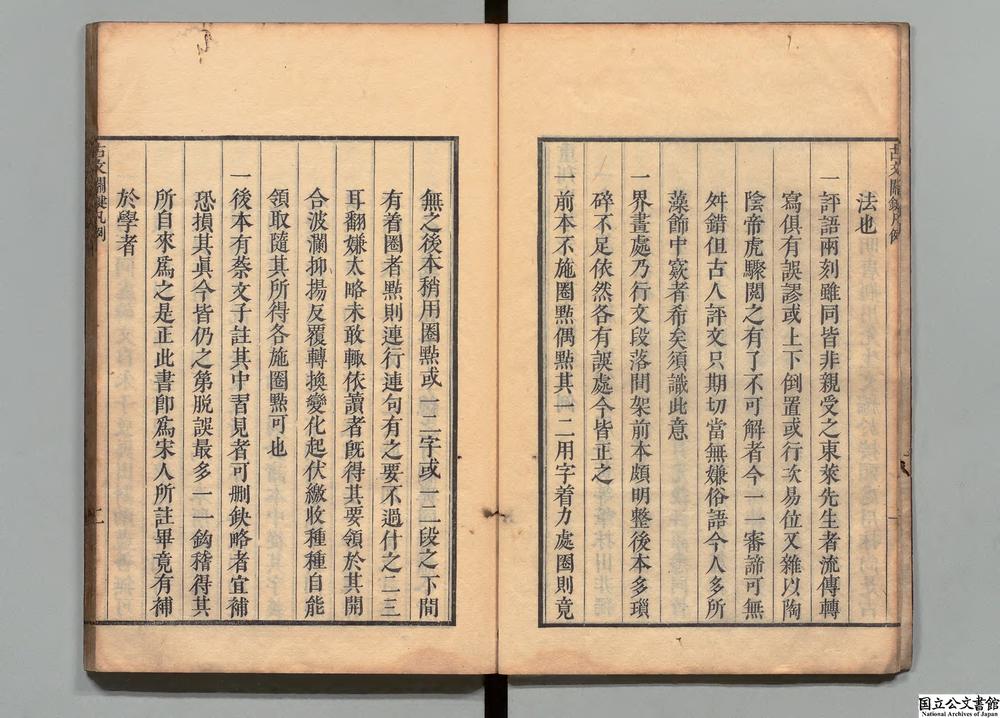 古文關鍵凡例
法也
一評語兩刻雖同皆非親受之東萊先生者流傳轉
寫俱有誤謬或上下倒置或行次易位又雜以陶
陰帝虎驟閱之有了不可解者今一一審諦可無
舛錯但古人評文只期切當無嫌俗語今人多所
藻飾中窾者希矣須識此意
一界畫處乃行文段落間架前本頗明整後本多瑣
碎不足依然各有誤處今皆正之
一前本不施圈點偶點其一二用字着力處圈則竟
無之後本稍用圈點或一二字或一二段之下間
有着圈者點則連行連句有之要不過什之二三
耳翻嫌太略未敢輙依讀者旣得其要領於其開
合波瀾抑揚反覆轉換變化起伏繳收種種自能
領取隨其所得各施圈點可也
一後本有蔡文子註其中習見者可刪鈌略者宜補
恐損其眞今皆仍之第脫誤最多一一鈎稽得其
所自來爲之是正此書卽爲宋人所註畢竟有補
於學者
古文關鍵凡例
二
国立公文書館
National Archives of Japan